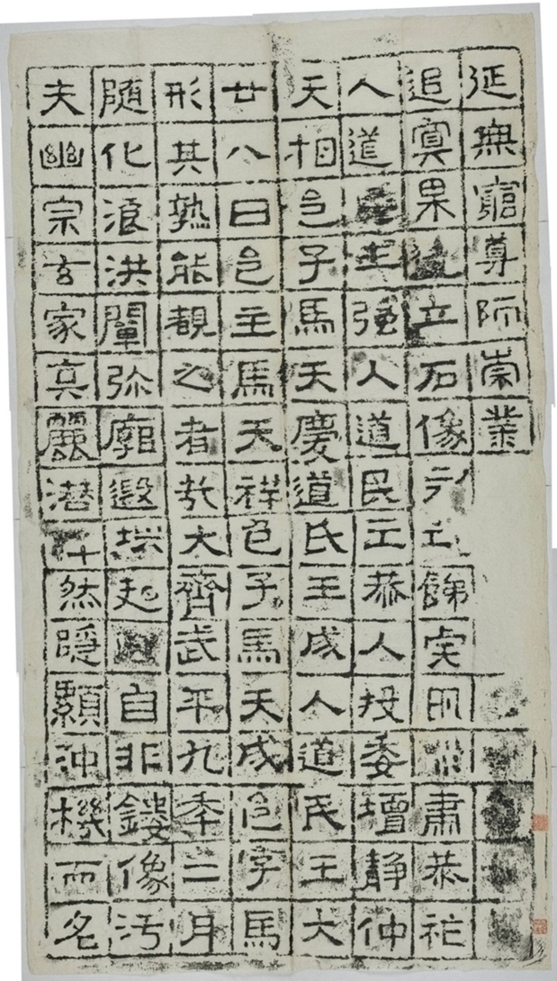 夫幽宗玄家真麗潜然隱顯沖機而名
隨化浪洪闡弥廓遐起自非鏤像污
形其孰能覩之者哉大齊武平九年二月
廿八日邑主馬天祥邑子馬天成邑子馬
天相邑子馬天慶道民王成人道民王大
人道民王強人道民王恭人投委壇静仲
追冥果造立石像餝突明肅恭祀
延無窮尊師崇業